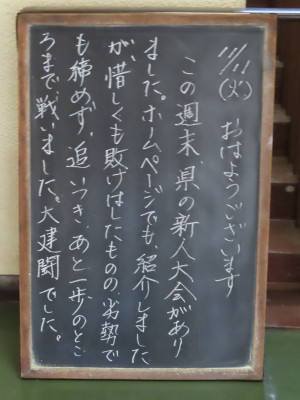 11/11(火) おはようございます
この週末、県の新人大会があり
ました。ホームページでも、紹介しました
が、惜しくも敗けはしたものの、劣勢で
も締めず、追いつき、あと一歩のとこ
ろまで、戦いました。大健闘でした。